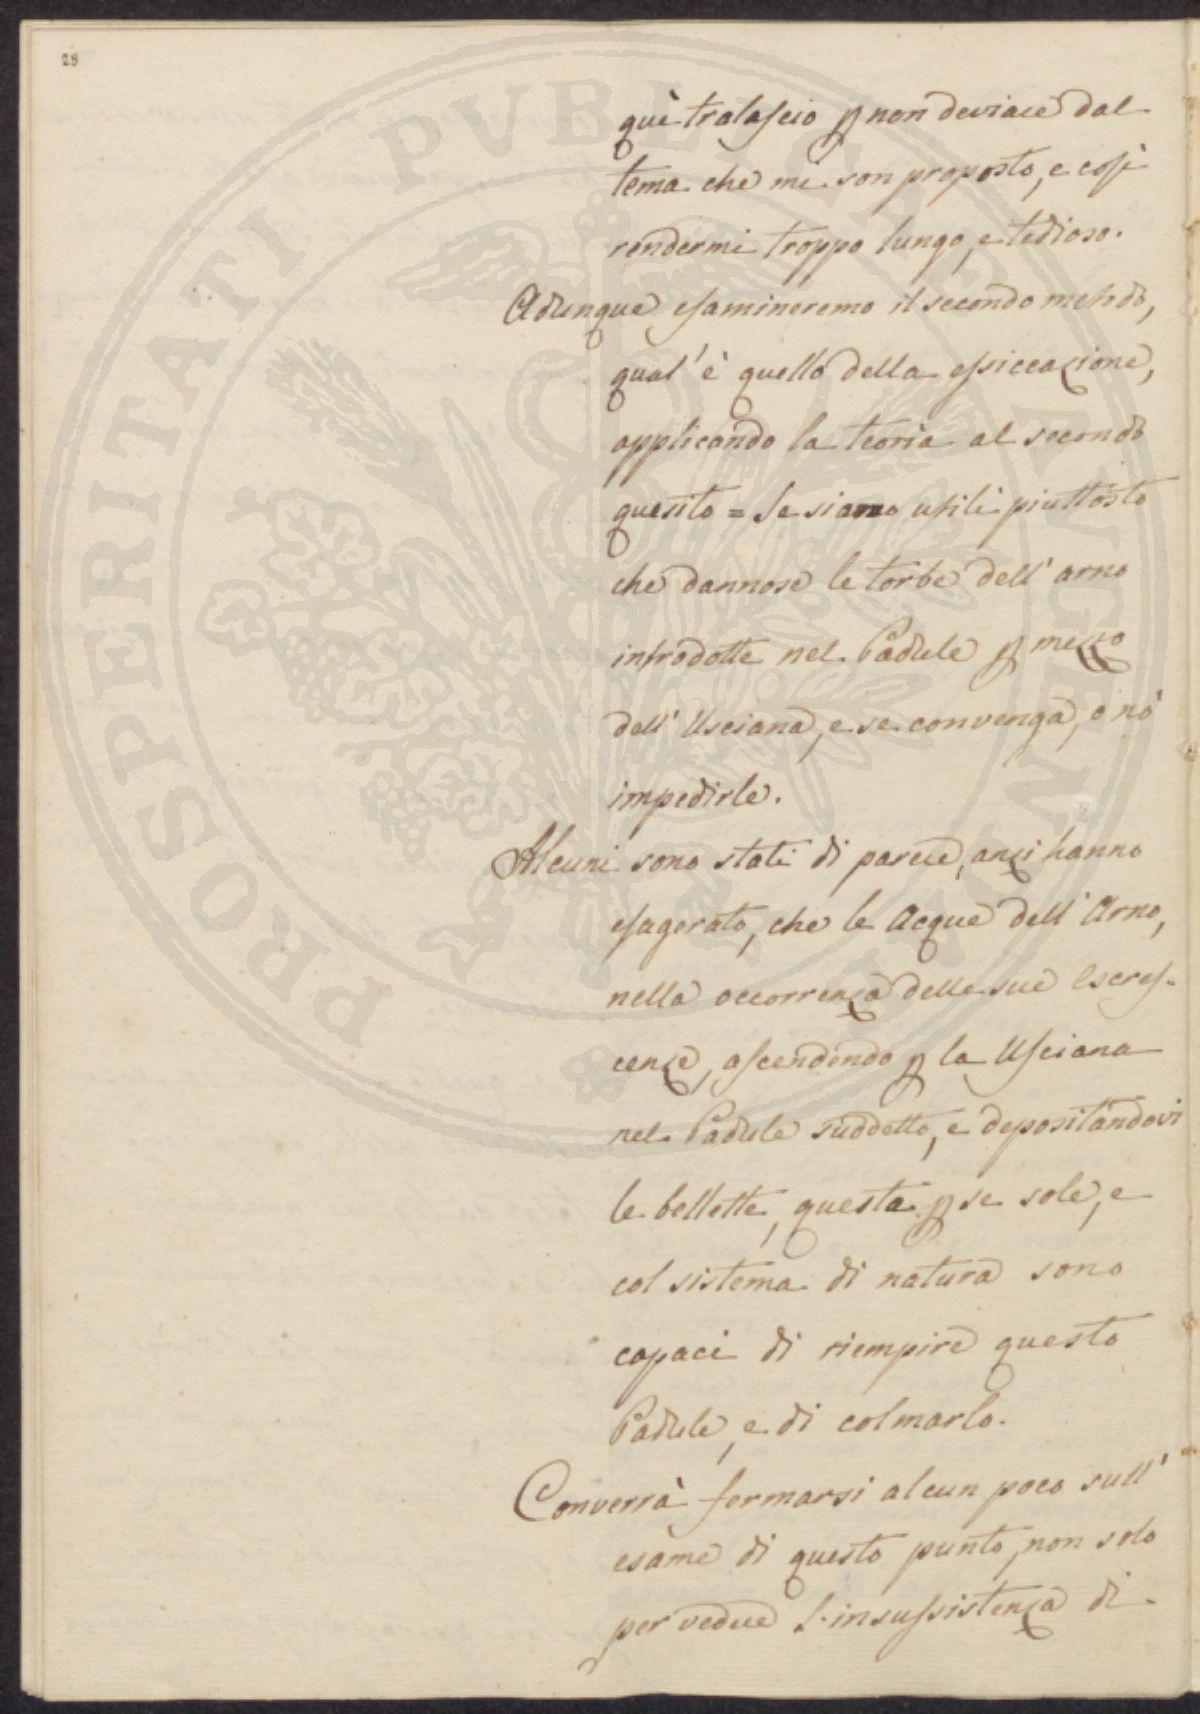 28
quì tralascio p non deviare dal
tema che mi son proposto, e così
rendermi troppo lungo, e tedioso.
Adunque esamineremo il secondo metodo,
qual' è quello della essiccazione,
applicando la teoria al secondo
quesito = Se siano utili piuttosto
che dannose le torbe dell' arno
introdotte nel Padule p mezzo
dell' Usciana, e se convenga, o nò
impedirle.
Alcuni sono stati di parere, anzi hanno
esagerato, che le Acque dell' Arno,
nella occorrenza delle sue Escres-
cenze, ascendendo p la Usciana
nel Padule suddetto, e depositandovi
le bellette, questa p se sole, e
col sistema di natura sono
capaci di riempire questo
Padule, e di colmarlo.
Converrà fermarsi alcun poco sull'
esame di questo punto, non solo
per vedere l'insussistenza di
PROSPERITATI PVBLICAE AVGENDAE